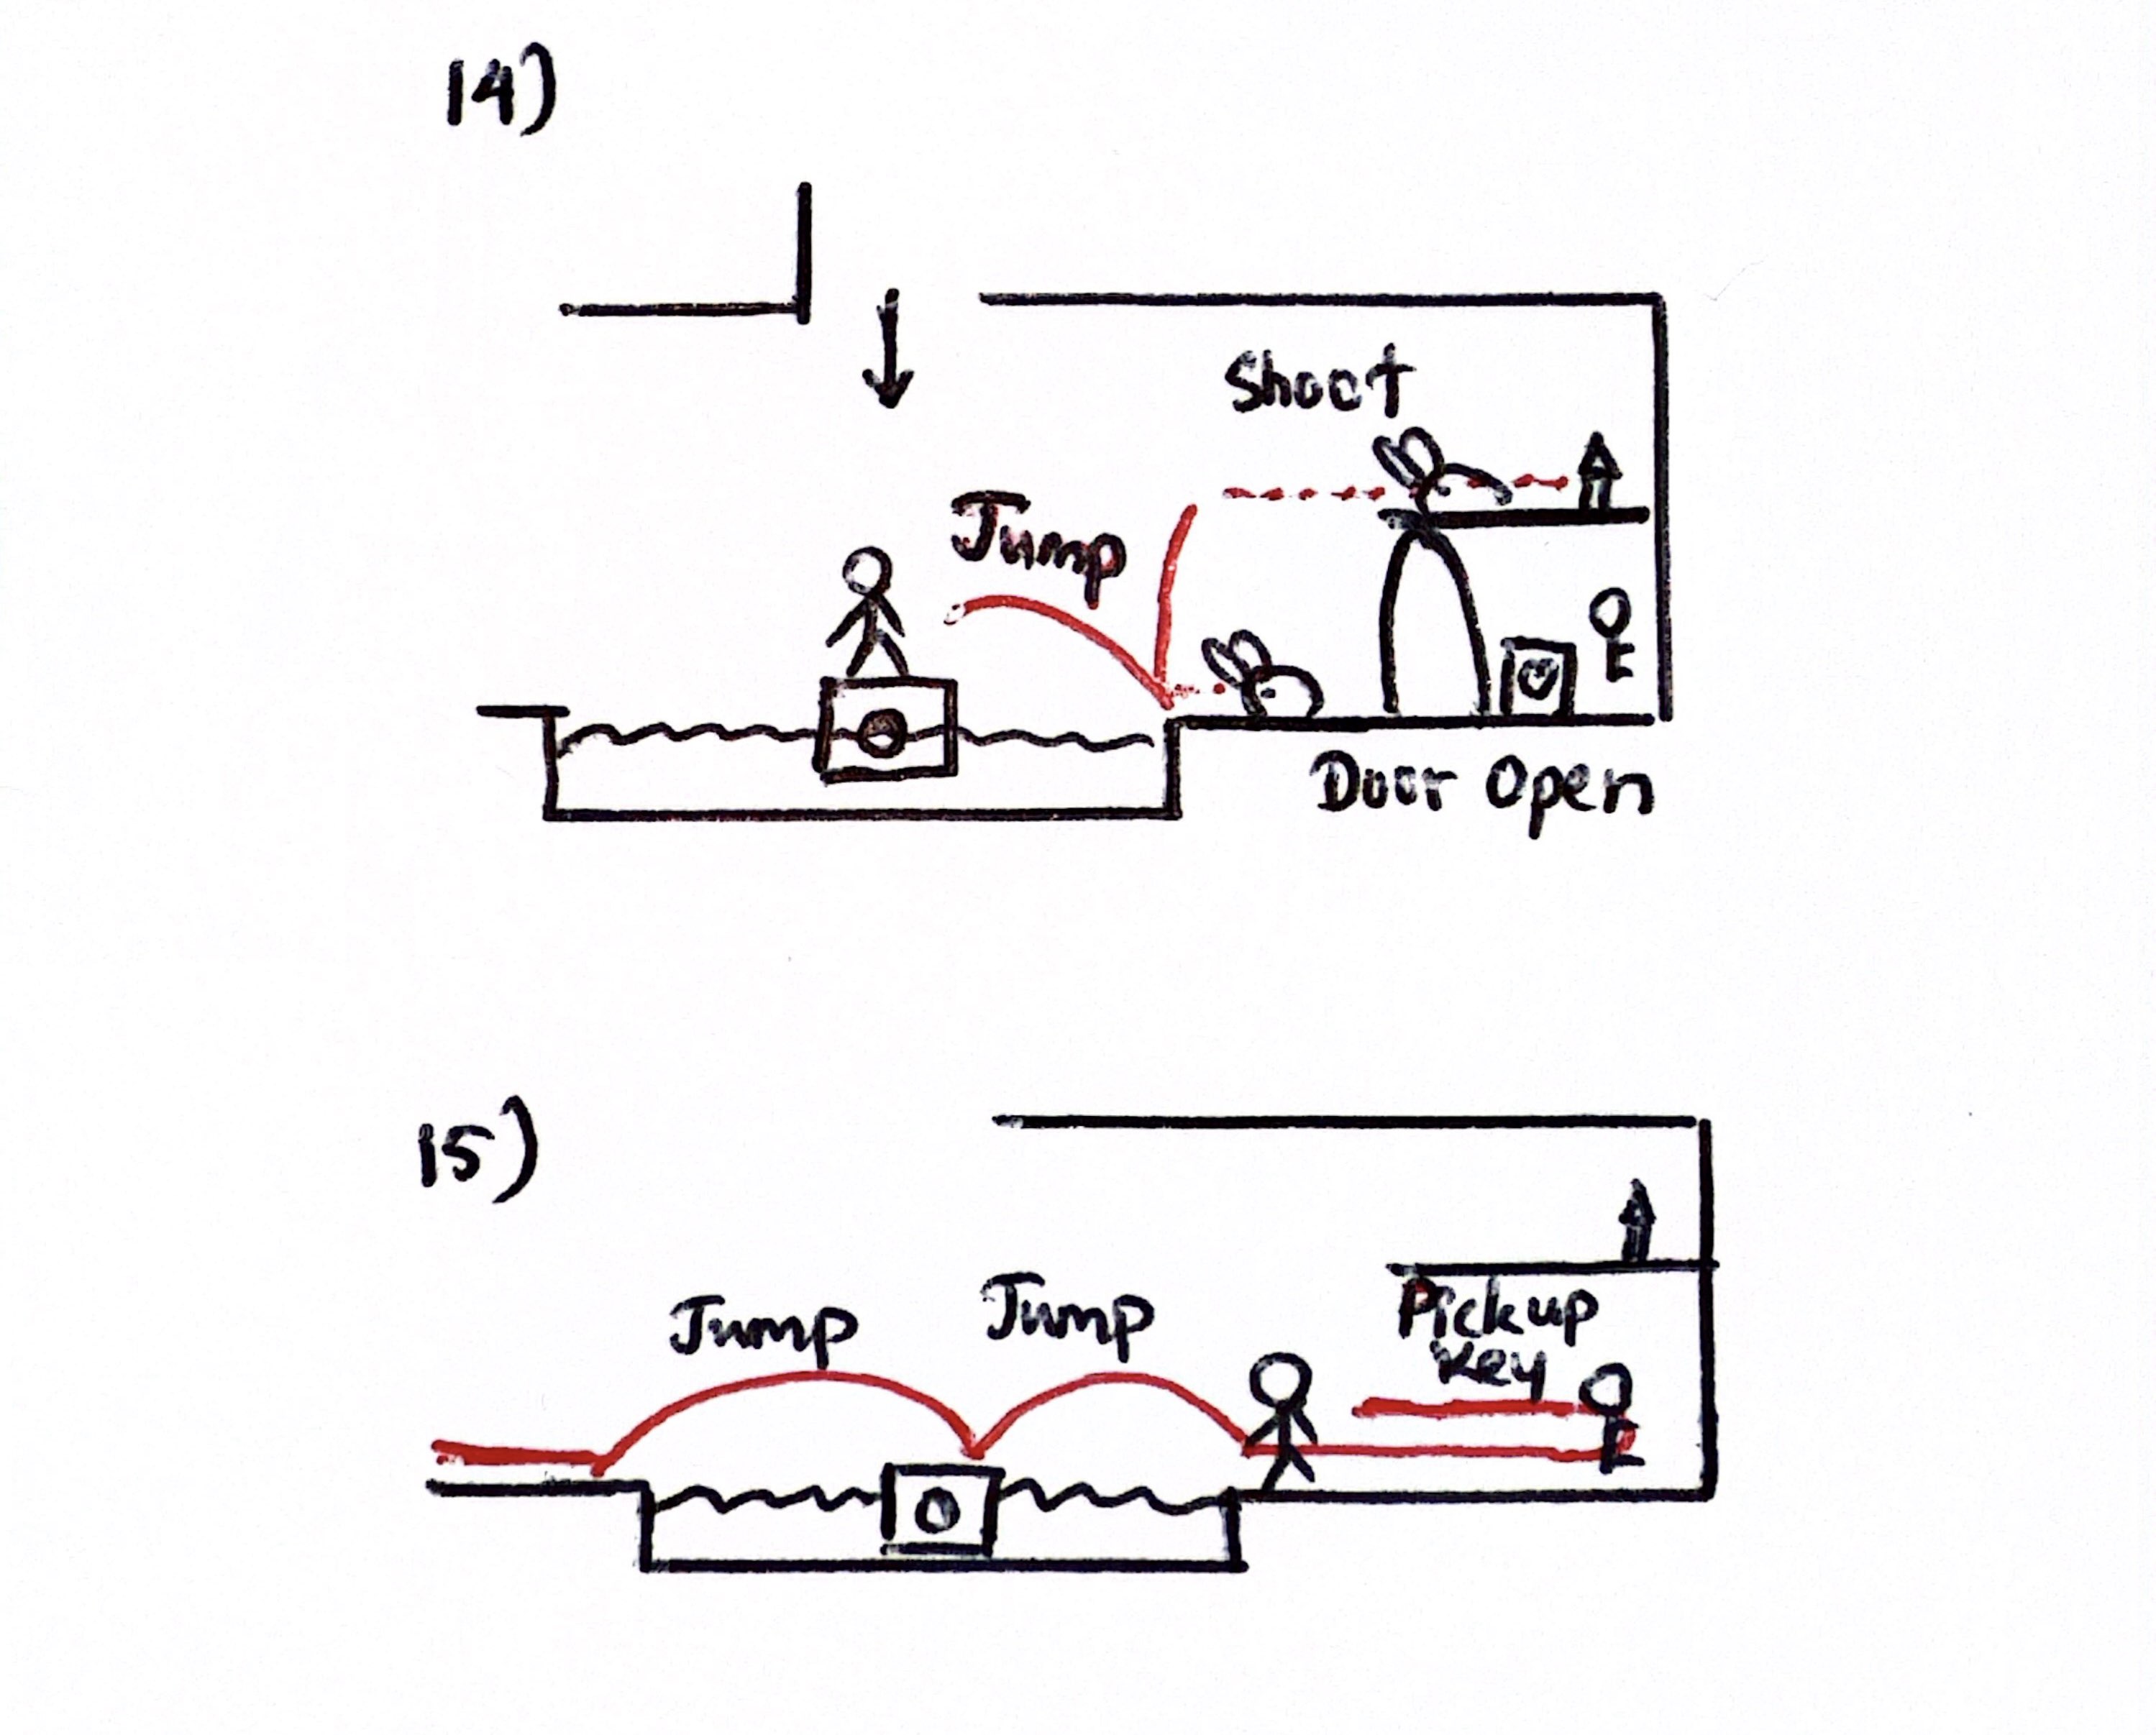 14)
Shoot
Jump
Door Open
15)
Jump
Jump
Pickup
Key